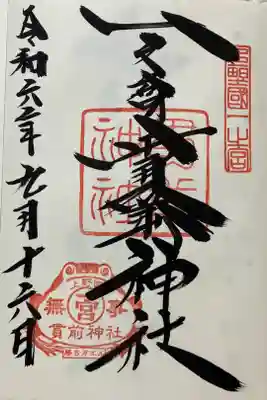 上野國一之宮
一之宮貫前神社
貫前神社
上野国
一宮
無事
貫前神社
令和六年九月十六日